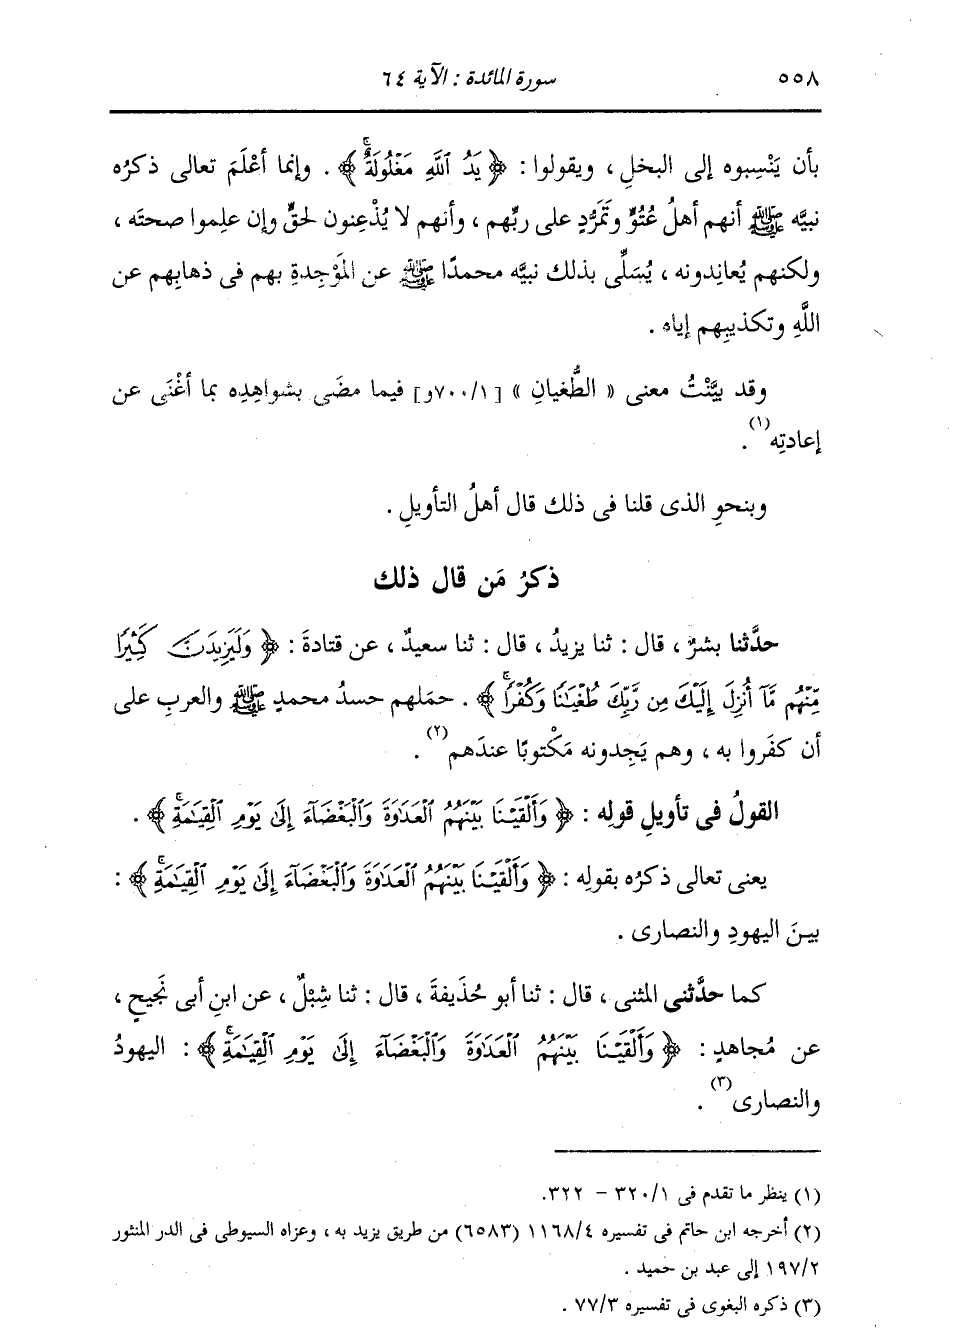 ٥٥٨ سورة المائدة : الآية ٦٤
بأن يَنْسِبوه إلى البخلِ ، ويقولوا : ﴿ يَدُ ٱللَّهِ مَغْلُولَةٌ ﴾ . وإنما أَعْلَمَ تعالى ذكرُه
نبيَّه ﷺ أنهم أهلُ عُتُوٍّ وتَمَرُّدٍ على ربِّهم ، وأنهم لا يُذْعِنون لحقٍّ وإن علِموا صحتَه ،
ولكنهم يُعانِدونه ، يُسَلِّى بذلك نبيَّه محمدًا ﷺ عن المَوْجِدةِ بهم فى ذهابِهم عن
اللَّهِ وتكذيبِهم إياه .
وقد بيَّنْتُ معنى « الطُّغيانِ » [١/٧٠٠و] فيما مضَى بشواهِدِه بما أغْنَى عن
إعادتِه(١).
وبنحوِ الذى قلنا فى ذلك قال أهلُ التأويلِ .
ذكرُ مَن قال ذلك
حدَّثنا بشرٌ ، قال : ثنا يزيدُ ، قال : ثنا سعيدٌ ، عن قتادةَ : ﴿ وَلَيَزِيدَنَّ كَثِيرًا
مِّنْهُم مَّآ أُنزِلَ إِلَيْكَ مِن رَّبِّكَ طُغْيَـٰنًا وَكُفْرًا ﴾ . حمَلهم حسدُ محمدٍ ﷺ والعربِ على
أن كفَروا به ، وهم يَجِدونه مَكْتوبًا عندَهم(٢) .
القولُ فى تأويلِ قولِه : ﴿ وَأَلْقَيْنَا بَيْنَهُمُ ٱلْعَدَاوَةَ وَٱلْبَغْضَآءَ إِلَىٰ يَوْمِ ٱلْقِيَـٰمَةِ ﴾ .
يعنى تعالى ذكرُه بقولِه : ﴿ وَأَلْقَيْنَا بَيْنَهُمُ ٱلْعَدَاوَةَ وَٱلْبَغْضَآءَ إِلَىٰ يَوْمِ ٱلْقِيَـٰمَةِ ﴾ :
بينَ اليهودِ والنصارى .
كما حدَّثنى المثنى ، قال : ثنا أبو حُذَيفةَ ، قال : ثنا شِبْلٌ ، عن ابنِ أبى نَجيحٍ ،
عن مُجاهدٍ : ﴿ وَأَلْقَيْنَا بَيْنَهُمُ ٱلْعَدَاوَةَ وَٱلْبَغْضَآءَ إِلَىٰ يَوْمِ ٱلْقِيَـٰمَةِ ﴾ : اليهودُ
والنصارى(٣) .
(١) ينظر ما تقدم فى ٣٢٠/١ – ٣٢٢.
(٢) أخرجه ابن حاتم فى تفسيره ١١٦٨/٤ (٦٥٨٣) من طريق يزيد به ، وعزاه السيوطى فى الدر المنثور
١٩٧/٢ إلى عبد بن حميد .
(٣) ذكره البغوى فى تفسيره ٧٧/٣ .